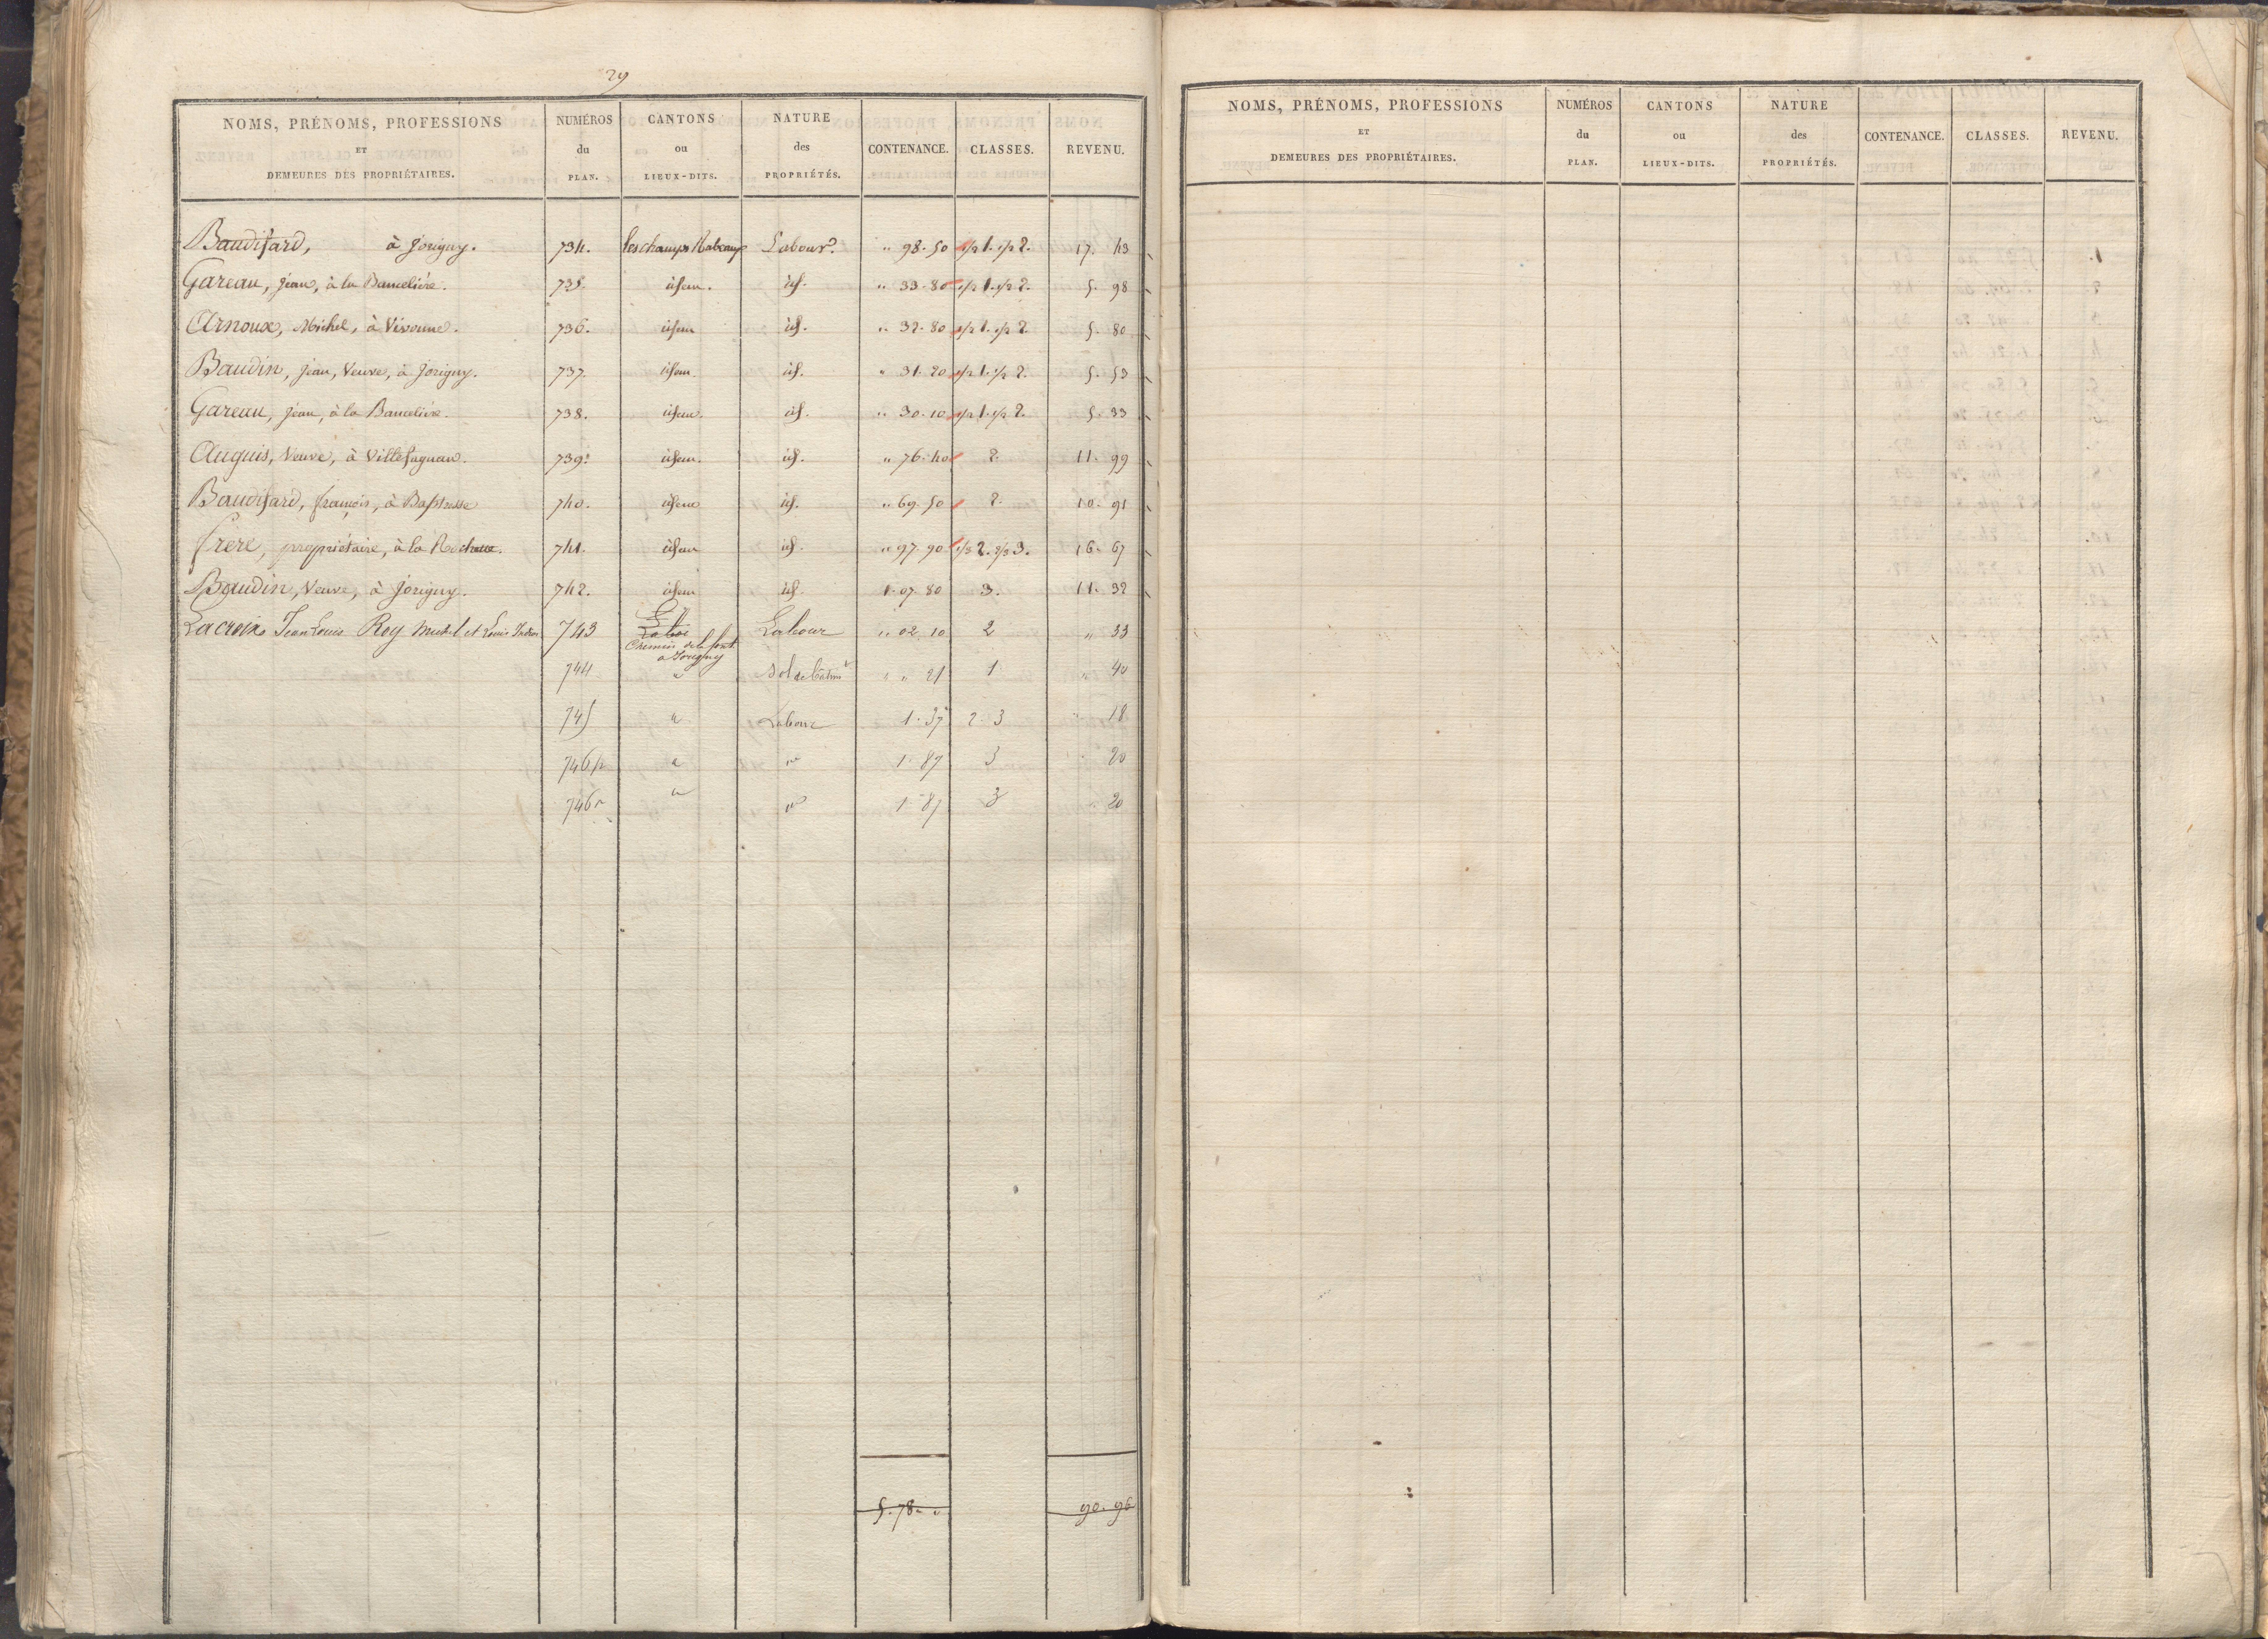 29
NOMS, PRÉNOMS, PROFESSIONS ET DEMEURES DES PROPRIÉTAIRES. NUMÉROS du PLAN. CANTONS ou LIEUX-DITS. NATURE des PROPRIÉTÉS. CONTENANCE. CLASSES. REVENU.
Baudifard, à Jorigny. 734. les champs Labour? " 98. 50 1/2 1. 1/2 2. 17. 43
Gareau, jean, à la Bancelière. 735. idem. id. " 33. 80 1/2 1. 1/2 2. 5. 98
Arnoux, Michel, à Vivonne. 736. idem id. " 32. 80 1/2 1. 1/2 2. 5. 80
Baudin, jean, Veuve, à Jorigny. 737. idem. id. " 31. 20 1/2 1. 1/2 2. 5. 53
Gareau, jean, à la Bancelière. 738. idem. id. " 30. 10 1/2 1. 1/2 2. 5. 33
Auquis, Veuve, à Villefagnan. 739. idem. id. " 76. 40 2. 11. 99
Baudifard, françois, à 740. idem id. " 69. 50 2. 10. 91
frere, propriétaire, à la 741. idem id. " 97. 90 1/3 2. 2/3 3. 16. 67
Baudin, Veuve, à Jorigny. 742. idem id. 1. 07. 80 3. 11. 32
Lacroix Jean Louis Roy Michel et Louis 743 Labour " 02 10 2 " 33
Chemin de la font
a Jorigny
744 " Sol de bâtim " " 21 1 " 40
745 " Labour 1. 37 2. 3 " 18
746p " " 1. 87 3 " 20
746 " " 1. 87 3 " 20
5. 78. " 90. 96
NOMS, PRÉNOMS, PROFESSIONS ET DEMEURES DES PROPRIÉTAIRES. NUMÉROS du PLAN. CANTONS ou LIEUX-DITS. NATURE des PROPRIÉTÉS. CONTENANCE. CLASSES. REVENU.